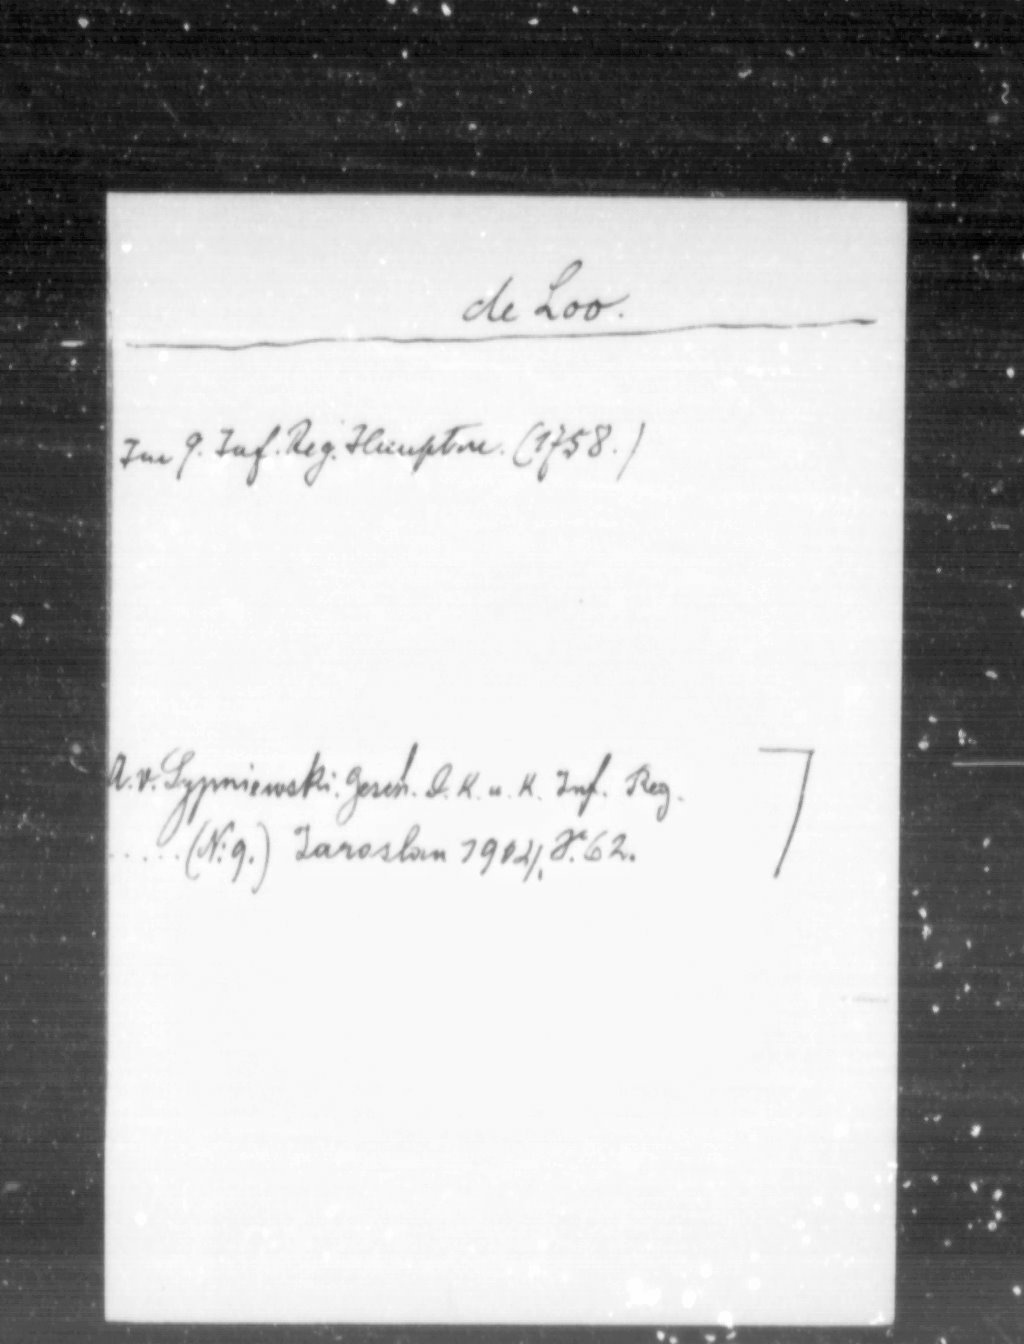 de Loo.
Im 9. Inf. Reg. Hauptm. (1758.)
A. v. Sypniewski. Gesch. d. K. u. K. Inf. Reg.
..... (N: 9.) Jaroslau 1904, S. 62.